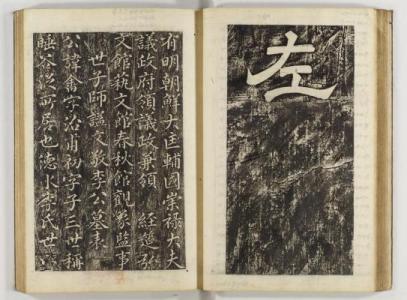 左
有明朝鮮大匡輔國崇祿大夫
議政府領議政兼領 經筵弘
文館藝文館春秋館觀象監事
世子師諡文敬李公墓表
公諱畬字治甫初字子三世稱
睡谷所居也德水李氏世